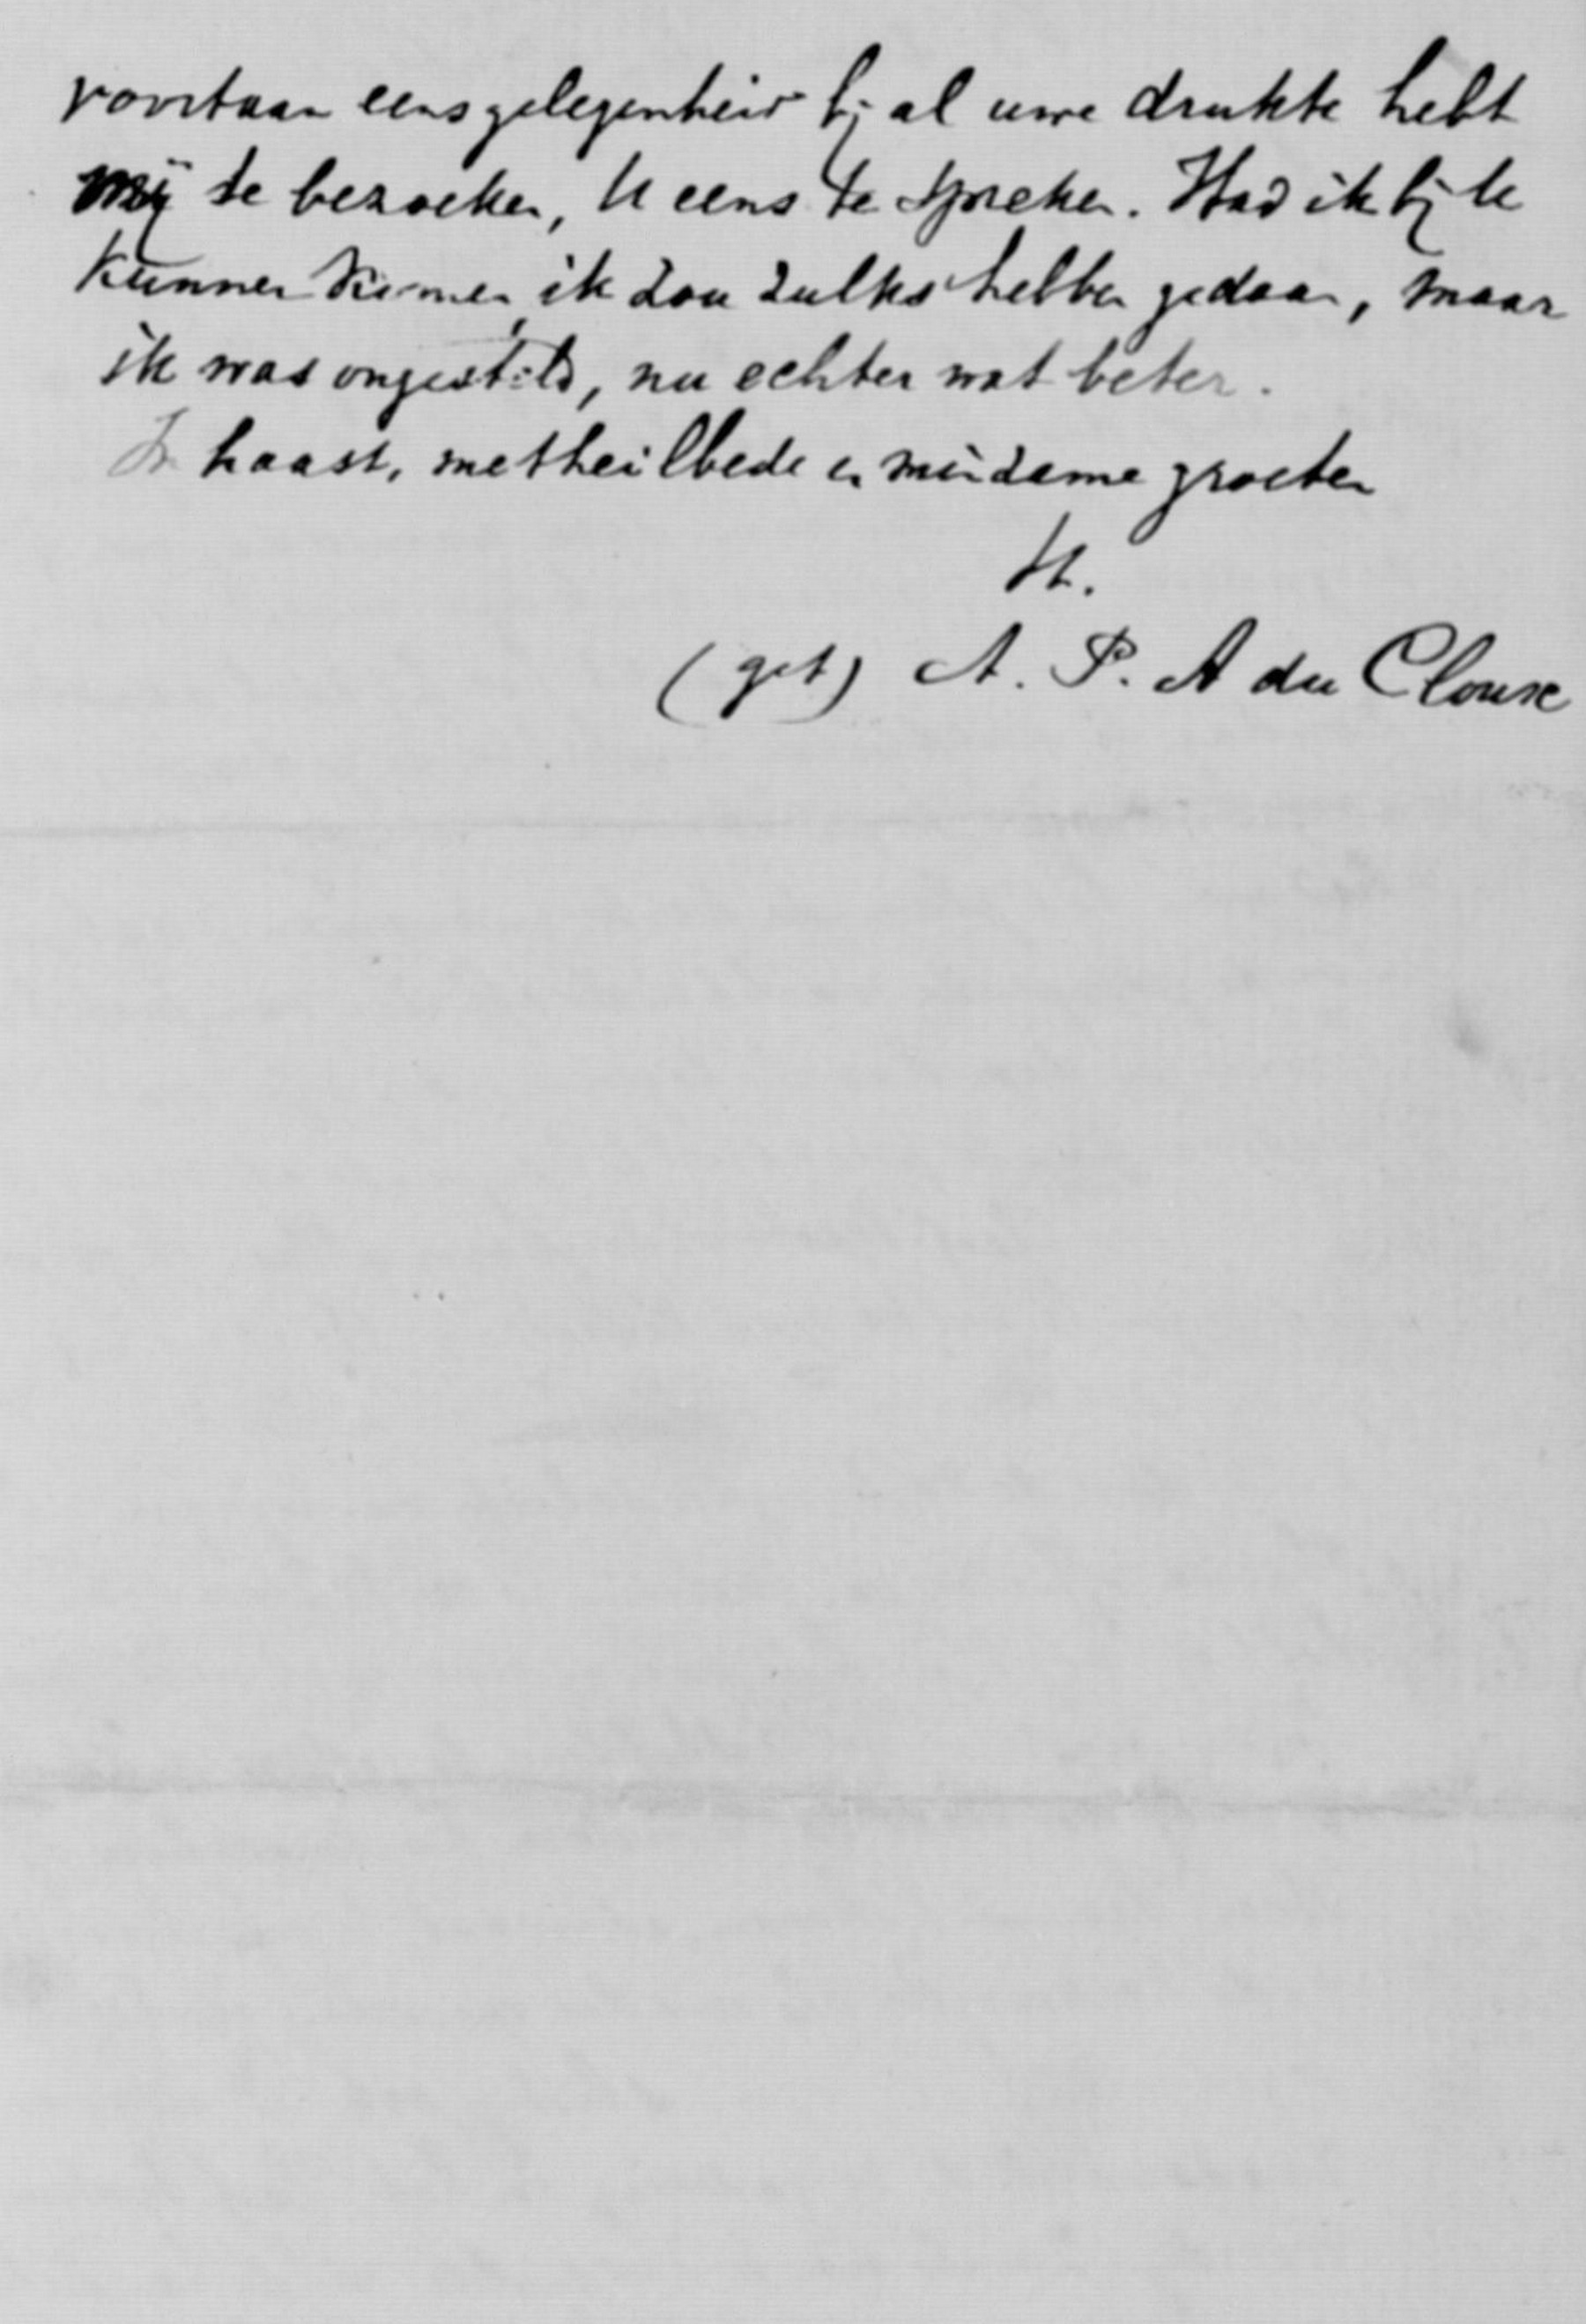 voortaan eens gelegenheid bij al uwe drukte hebt
mij te bezoeken, U eens te spreken. Had ik bij U
kunnen komen, ik zou zulks hebben gedaan, maar
ik was ongesteld, nu echter wat beter.
In haast, met heilbede en minzame groeten
tt.
(get) A. P. A du Cloux